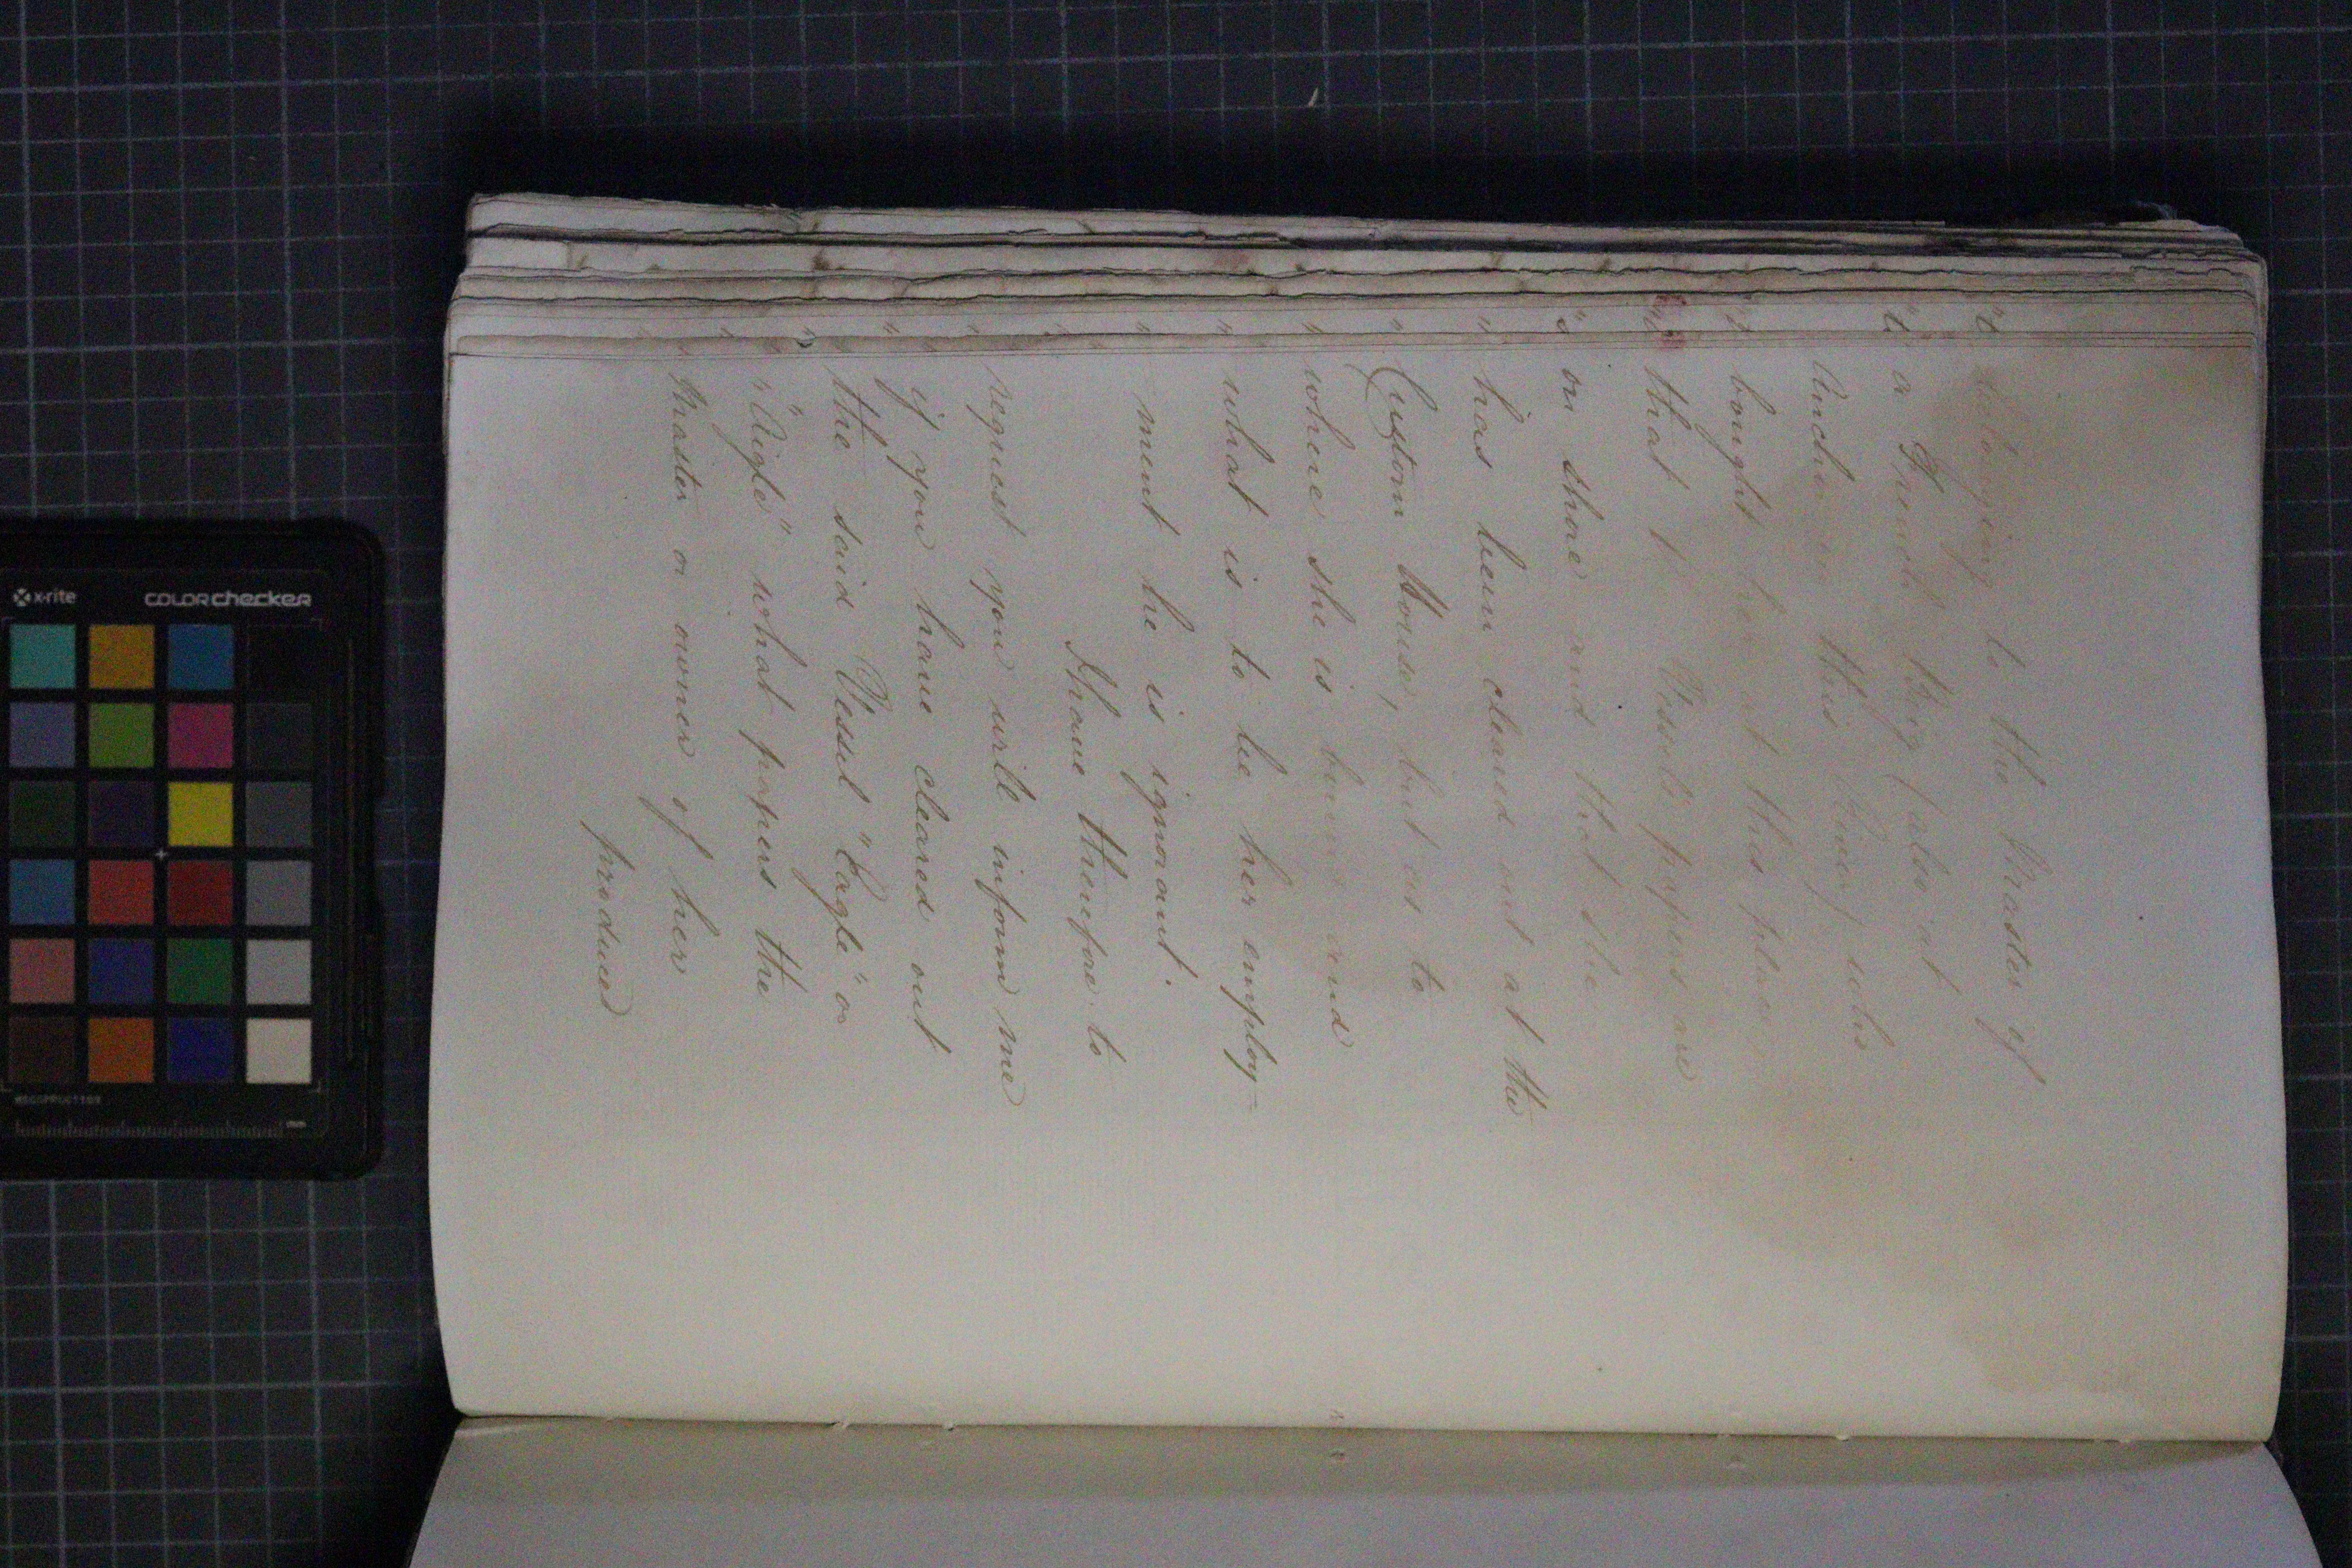 belonging to the Master of
a French Brig (also at
Anchor in this River) who
bought her at this place
that ye. Vessel's papers are
on shore and that she
has been cleared out at the
Custom House, but as to
where she is bound and
what is to be her employ-
ment he is ignorant.
I have therefore to
request you will inform me
if you have cleared out
the said Vessel "Eagle" or
"Aigle" what papers the
Master or owner of her
produced
x-rite
colorchecker